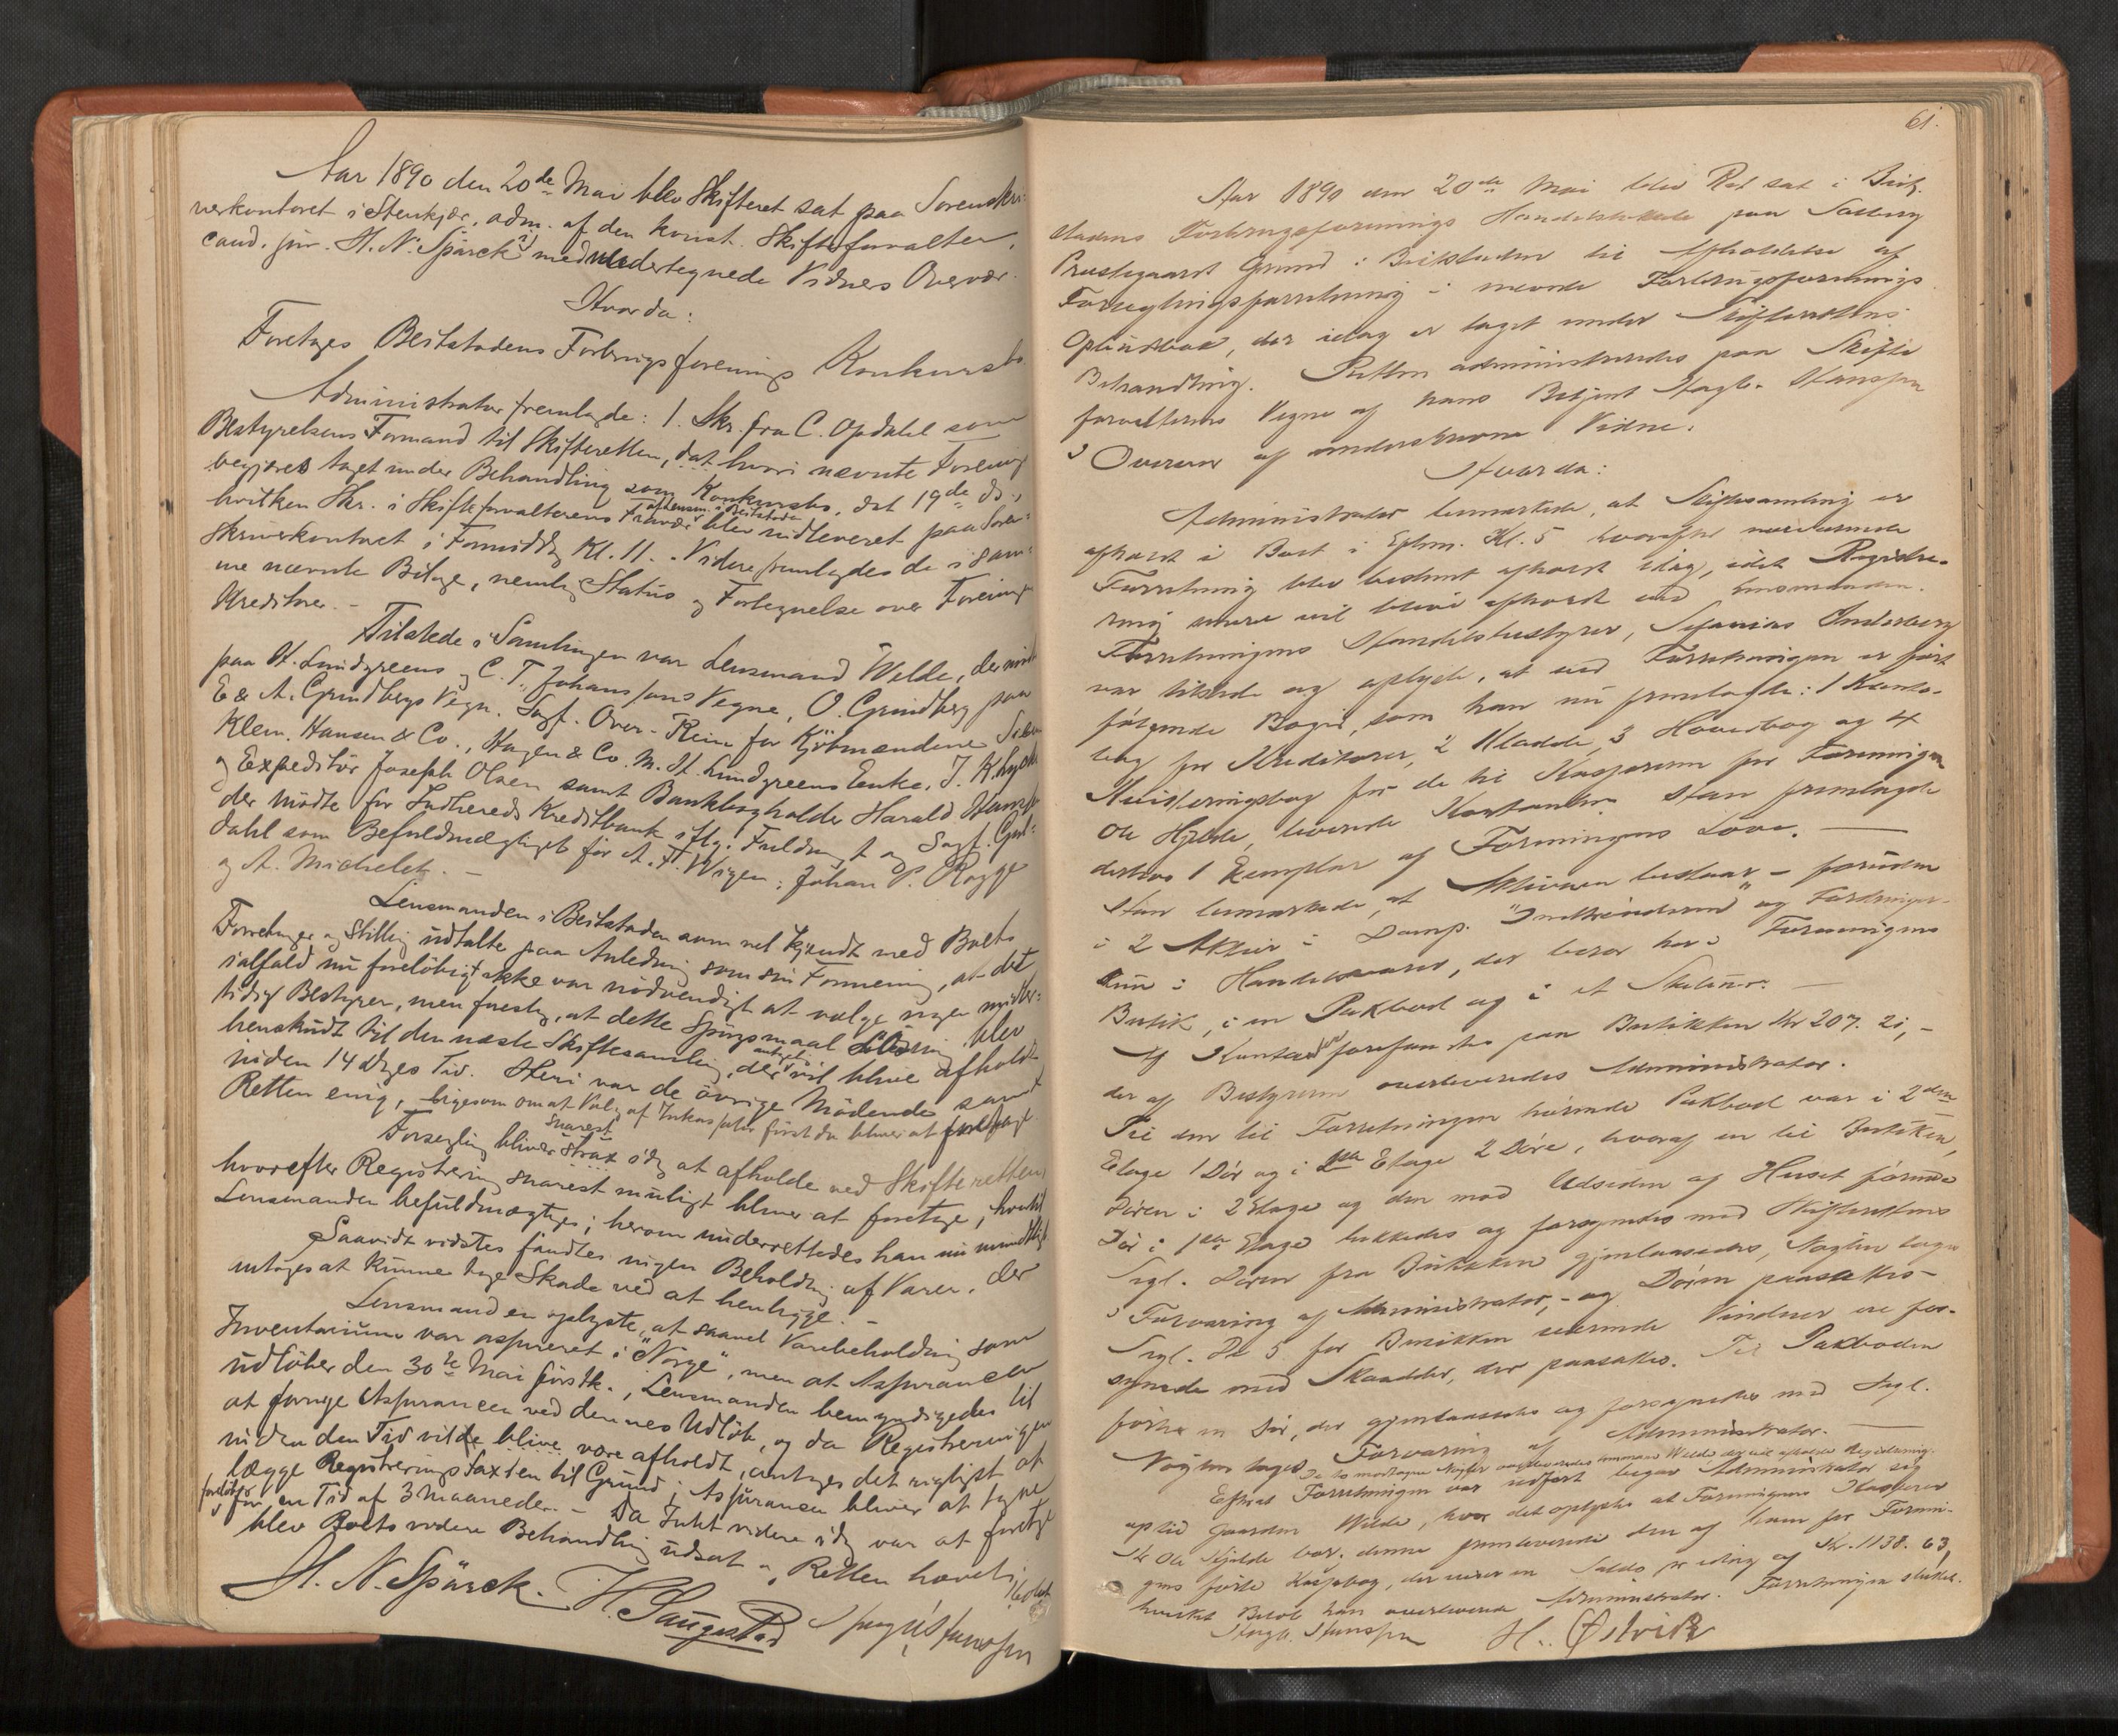 Aar 1890 den 20de Mai blev Skifteret sat paa Sorenskri-
verkontoret i Stenkjær, adm. af den konst. Skifteforvalter,
cand. jur. H. N. Spärck med undertegnede Vidners Overvær.
Hvorda:
Foretages Beitstadens Forbrugsforenings Konkursbo.
Administrator fremlagde: 1. Skr. fra C. Opdahl som
Bestyrelsens Formand til Skifteretten, dat hvori nævnte Forening
begjæres taget under Behandling som Konkursbo, dat 19de ds.,
hvilken Skr. i Skifteforvalterens Fravær blev indleveret paa Soren-
skriverkontoret i Formiddg Kl. 11. Videre fremlagdes de i sam-
me nævnte Bilage, nemlig Status og Fortegnelse over Foreningens
Kreditorer. -
Tilstede i Samlingen var Lensmand Welde, der mødte
paa H. Lundgreens og C. T. Johansens Vegne, O. Grindberg paa
E & A. Grindbergs Vegn. Sagf. Over-Rein for Kjöbmændene
Klem. Hansen & Co., Hagen & Co. M. H. Lundgreens Enke, J.
og Expeditör Joseph Olsen samt Bankbogholder Harald
der mödte for Indhereds Kreditbank iflg. Fuldm. t og Sagf. Gul-
dahl som Befuldmægtiget for A. F. Wigen, Johan P. Rogge
og A. Michelet. -
Lensmanden i Beitstaden som vel kjendt med Boets
Forretninger og Stilling udtalte paa Anledning som sin Formening, at det
ialfald nu foreløbigt ikke var nödvendigt at vælge nogen midler-
tidig Bestyrer, men foreslog, at dette Spörgsmaal blev
henskudt til den næste Skiftesamling, der antagelig vil blive afholdt
inden 14 Dages Tid. Heri var de övrige Mödende samt
Retten enig, ligesom om at Valg af Inkassator först da bliver at foretage
Forsegling bliver snarest strax idag at afholde ved Skifteretten,
hvorefter Registrering snarest muligt bliver at foretage, hvortil
Lensmanden befuldmægtiges; herom underrettedes han nu mundtligt
Saavidt vidstes fandtes ingen Beholdng af Varer, der
antoges at kunne tage Skade ved at henligge. -
Lensmanden oplyste, at saavel Varebeholdning som
Inventarium var assureret i "Norge", men at Assurancen
udlöber den 30te Mai förstk., Lensmanden bemyndigedes til
at fornye Assurancen ved dennes Udlöb, og da Registreringen
inden den Tid vilde blive være afholdt, antages det rigtigst at
lægge Registreringstaxten til Grund; Assurancen bliver at tegne
foreløbig for en Tid af 3 Maaneder. - Da Intet videre idag var at foretage
blev Boets videre Behandling udsat og Retten hævet.
H. N. Spärck. H. Saugestad

61.
Aar 1890 den 20de Mai blev Ret sat i Beit-
stadens Forbrugsforenings Handelslokale paa Solberg
Præstegaards Grund i Beitstaden til Afholdelse af
Forseglingsforretning i nævnte Forbrugsforenings
Opbudsbo, der idag er taget under Skifterettens
Behandling. Retten administreredes paa Skifte
forvalterens Vegne af hans Betjent Hansson
i Overvær af underskrevne Vidne.
Hvorda:
Administrator bemærkede, at Skiftesamling er
afholdt i Boet i Efterm. Kl. 5 hvorefter nærværende
Forretning blev bestemt afholdt idag, idet Registre-
ring senere vil blive afholdt ved Lensmanden.
Forretningens Handelsbestyrer,
var tilstede og oplyste, at ved Forretningen er ført
følgende Bøger, som han nu fremlagde: 1 Konto-
bog for Kreditorer, 2 Kladde, 3 Hovedbog og 4
Kvitteringsbog for de til Kassereren for Foreningen
Ole Hjelde, leverede Kontanter. Han fremlagde
derhos 1 Exemplar af Foreningens Love.
Han bemærkede, at Aktivaen bestaar - foruden
i 2 Aktier i Damp. "Indherreden" og Fordringer-
kun i Handelsvarer, der beror her i Foreningens
Butik, i en Pakbod og i et Skibnøst.
Af Kontanter forefandtes paa Butikken Kr 207. 21, -
der af Bestyreren overleveredes Administrator.
Til den til Forretningen hørende Pakbod var i 2den
Etage 1 Dør og i 1ste Etage 2 Døre, hvoraf en til Butiken,
Døren i 2 Etage og den mod Udsiden af Huset førende
Dør i 1ste Etage lukkedes og forsynedes med Skifterettens
Segl. Døren fra Butikken gjenlaasedes, Nøglen toges
i Forvaring af Administrator, - og Døren paasattes
Segl. De 5 for Butikken værende Vinduer ere for-
synede med Skaadder, der paasattes. Til Pakboden
førte en Dør, der gjenlaasedes og forsynedes med Segl.
Nøglen toges i Forvaring af Administrator.
Efterat Forretningen var udført begav Administrator sig
op til Gaarden Welde, hvor det oplystes at Foreningens Kasserer
Hr Ole Hjelde bor; denne fremleverede den af ham for Forenin-
gens førte Kassebog, der viser en Saldo pr idag af Kr. 1138. 63,
hvilket Beløb han overleverede Administrator. Forretningen sluttet.
H. Østvik